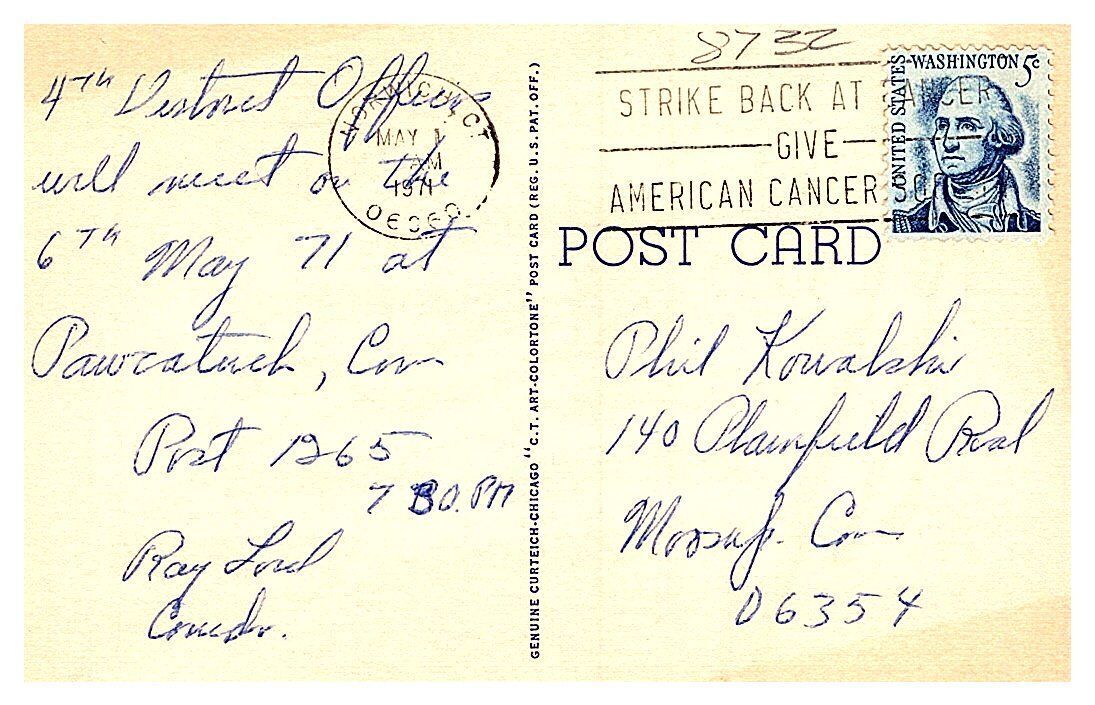 4TH District Officers
will meet on the
6TH May 71 at
Pawcatuck, Con
Post 1265
7 30. PM
Ray Lord
Comdr.
NORWICH, CT
MAY 1
AM
1971
06360
GENUINE CURTEICH-CHICAGO "C.T. ART-COLORTONE" POST CARD (REG. U.S. PAT. OFF.)
8732
STRIKE BACK AT CANCER
GIVE
AMERICAN CANCER SO
UNITED STATES
WASHINGTON 5c
POST CARD
Phil Kowalski
140 Plainfield Road
Moosup. Con
06354